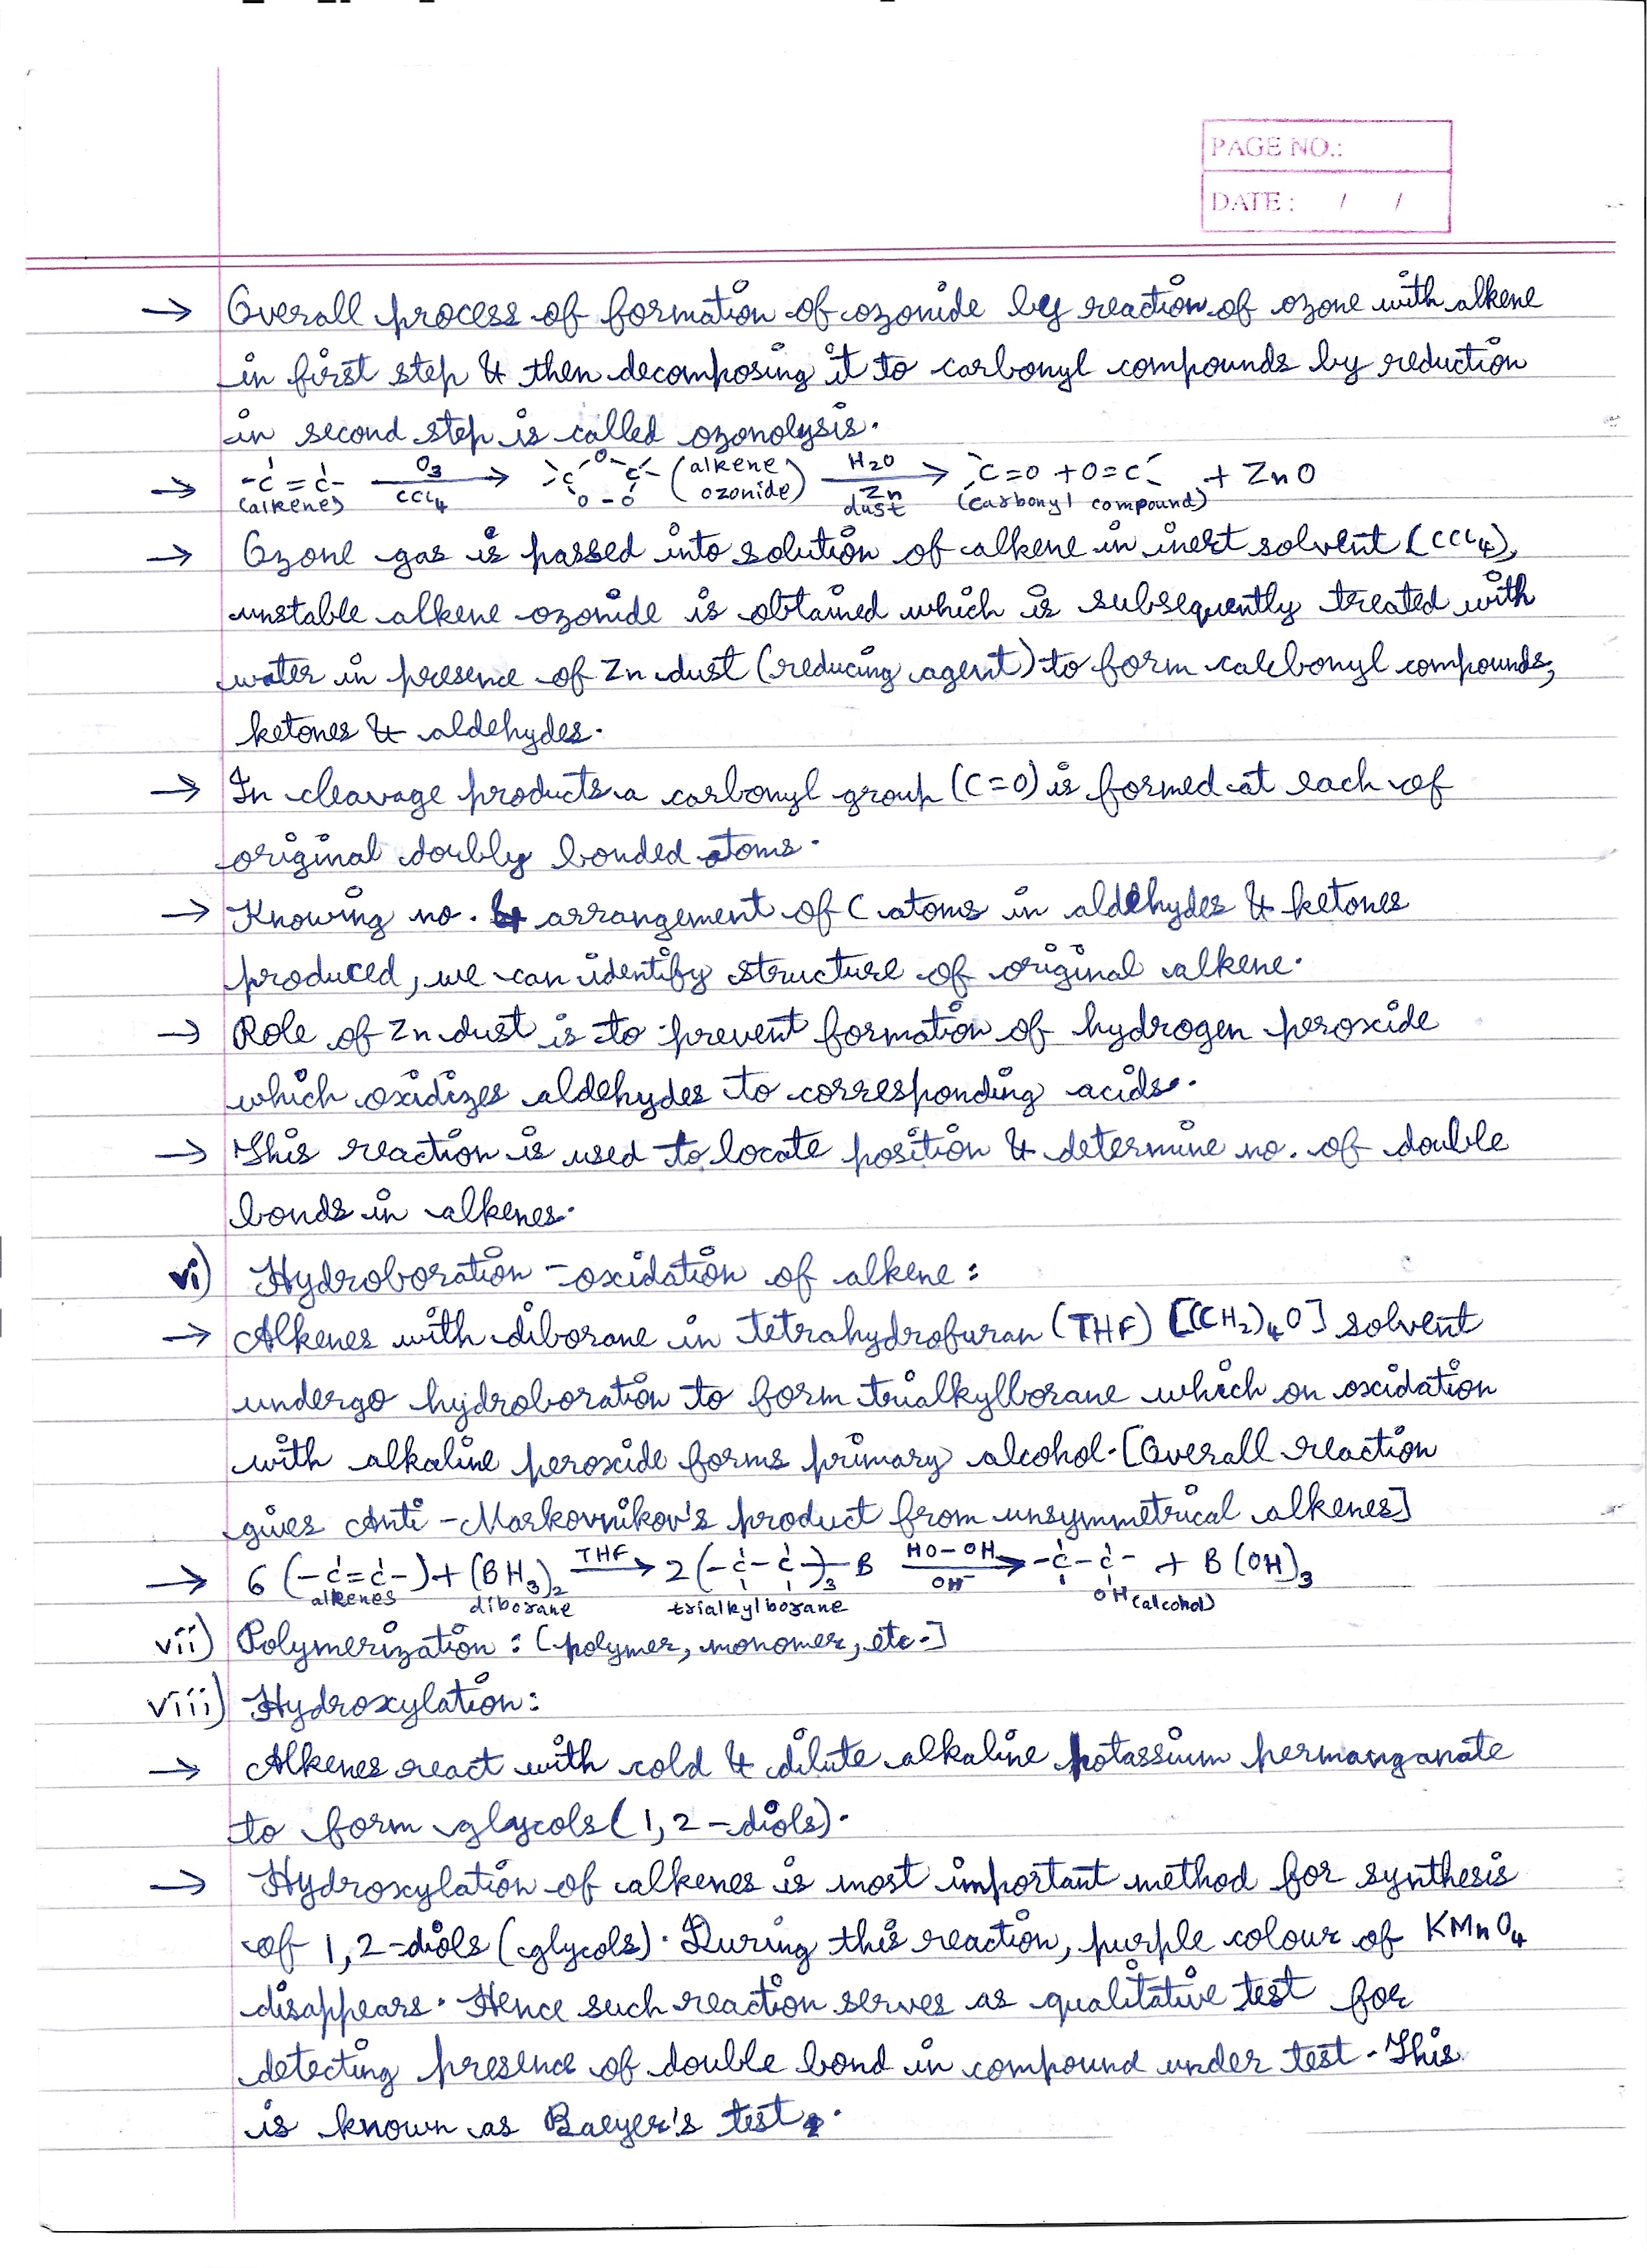 PAGE NO.:
DATE : / /
→ Overall process of formation of ozonide by reaction of ozone with alkene
in first step & then decomposing it to carbonyl compounds by reduction
in second step is called ozonolysis.
→ -C=C- (alkene) O3 CCl4 → C O C O-O (alkene ozonide) H2O Zn dust → C=O + O=C (carbonyl compound) + ZnO
→ Ozone gas is passed into solution of alkene in inert solvent (CCl4),
unstable alkene ozonide is obtained which is subsequently treated with
water in presence of Zn dust (reducing agent) to form carbonyl compounds,
ketones & aldehydes.
→ In cleavage products a carbonyl group (C=O) is formed at each of
original doubly bonded atoms.
→ Knowing no. & arrangement of C atoms in aldehydes & ketones
produced, we can identify structure of original alkene.
→ Role of Zn dust is to prevent formation of hydrogen peroxide
which oxidizes aldehydes to corresponding acids.
→ This reaction is used to locate position & determine no. of double
bonds in alkenes.
vi) Hydroboration-oxidation of alkene:
→ Alkenes with diborane in tetrahydrofuran (THF) [(CH2)4O] solvent
undergo hydroboration to form trialkylborane which on oxidation
with alkaline peroxide forms primary alcohol. [Overall reaction
gives Anti-Markovnikov's product from unsymmetrical alkenes]
→ 6(-C=C-) + (BH3)2 THF → 2(-C-C-)3-B HO-OH OH⁻ → -C-C- + B(OH)3
alkenes diborane trialkylborane OH (alcohol)
vii) Polymerization: [polymer, monomer, etc.]
viii) Hydroxylation:
→ Alkenes react with cold & dilute alkaline potassium permanganate
to form glycols (1,2-diols).
→ Hydroxylation of alkenes is most important method for synthesis
of 1,2-diols (glycols). During this reaction, purple colour of KMnO4
disappears. Hence such reaction serves as qualitative test for
detecting presence of double bond in compound under test. This
is known as Baeyer's test.